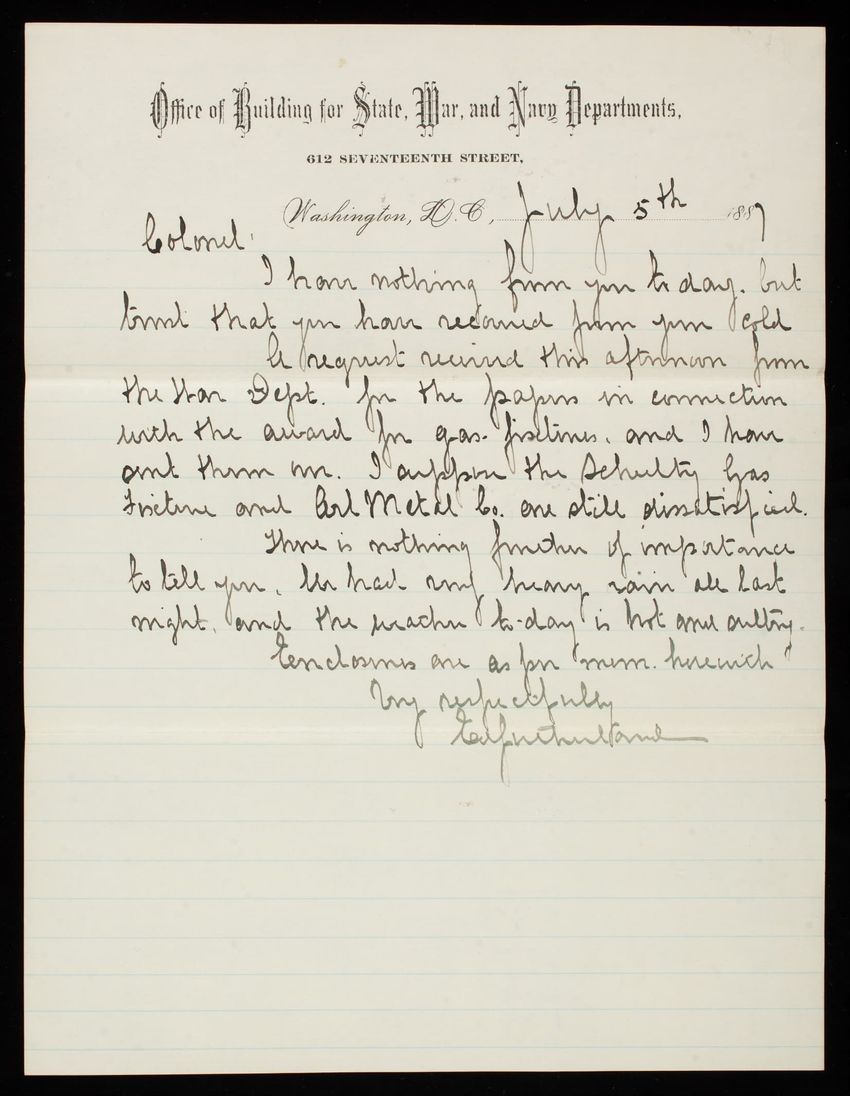 Office of Building for State, War, and Navy Departments,
612 SEVENTEENTH STREET,
Washington, D.C., July 5th 1887
Colonel:
I have nothing from you to day. but
trust that you have recovered from your cold
A request received this afternoon from
the War Dept. for the papers in connection
with the award for gas-fixtures, and I have
sent them on. I suppose the Schultz Gas
Fixture and Art Metal Co. are still dissatisfied.
There is nothing further of importance
to tell you. We had very heavy rain all last
night, and the weather to-day is hot and sultry.
Enclosures are as per mem. herewith
Very respectfully